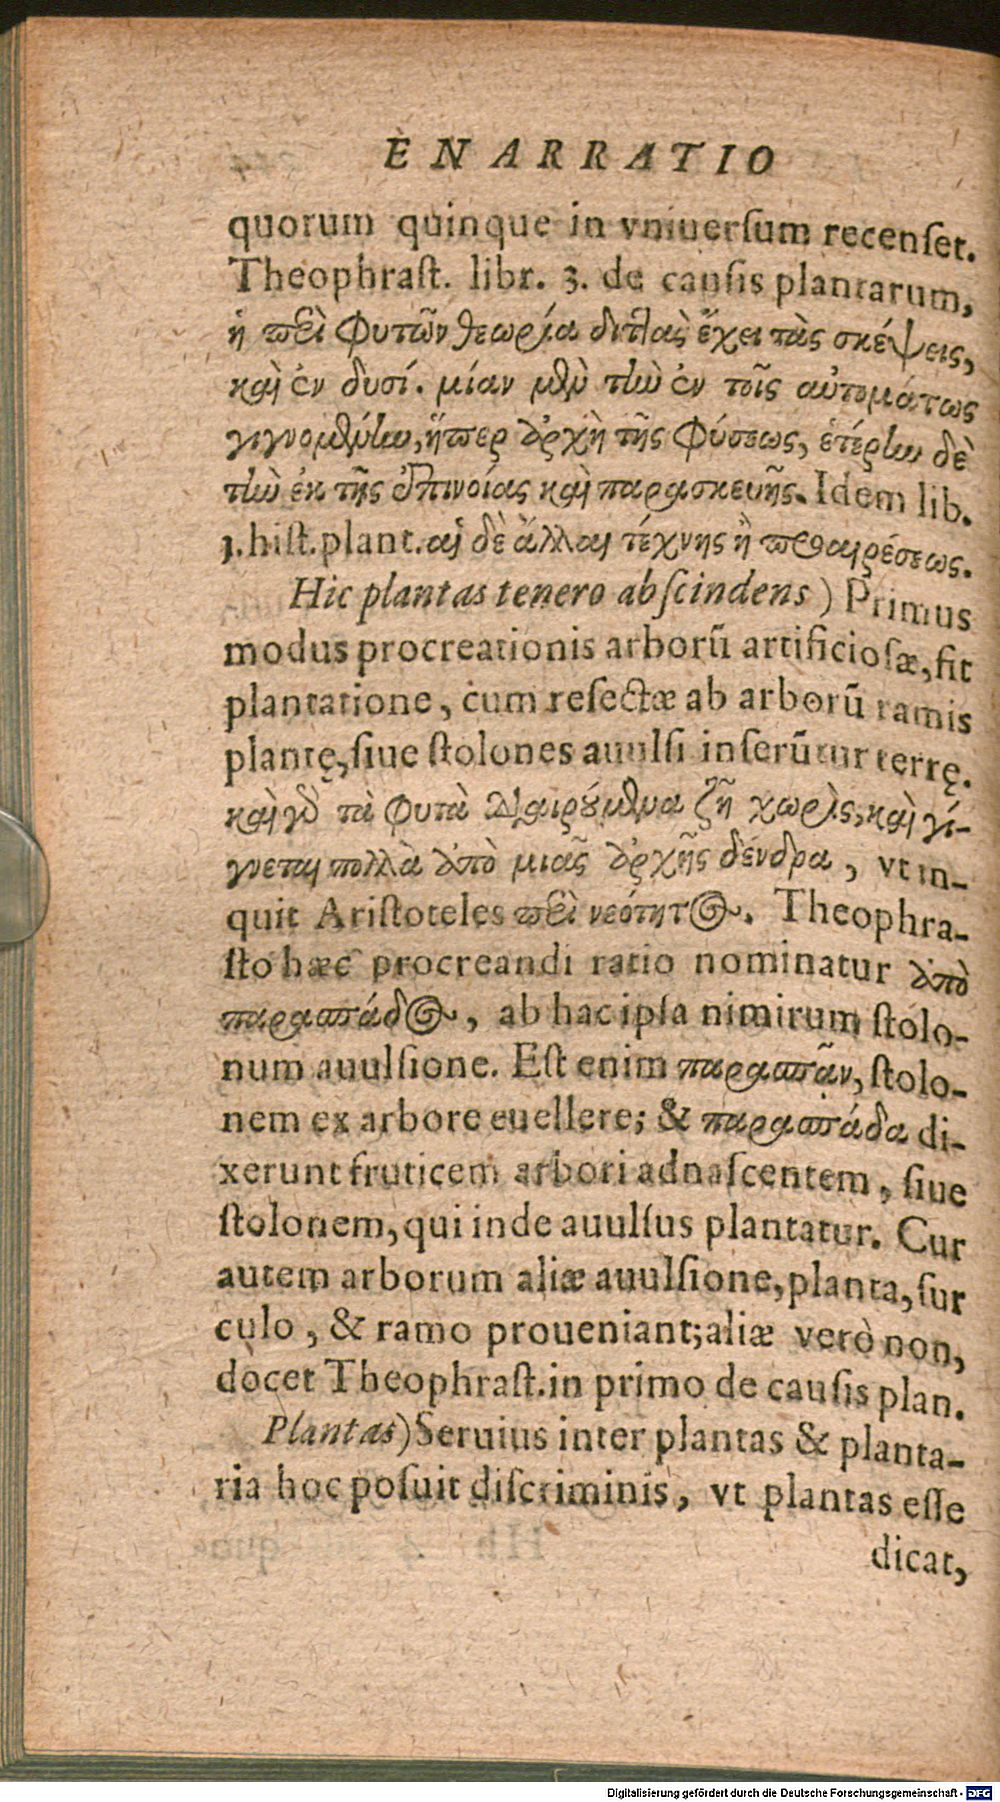 ENARRATIO
quorum quinque in vniuerſum recenſet.
Theophraſt. libr. 3. de cauſis plantarum,
ἡ περὶ φυτῶν θεωρία διτλὰς ἔχει τὰς σκέψεις,
καὶ ἐν δυσί. μίαν μὲν τὴν ἐν τοῖς αὐτομάτως
γιγνομένην, ἥπερ ἀρχὴ τῆς φύσεως, ἑτέρην δὲ
τὴν ἐκ τῆς ἐπινοίας καὶ παρασκευῆς. Idem lib.
1. hiſt. plant. αἱ δὲ ἄλλαι τέχνης ἢ προαιρέσεως.
Hic plantas tenero abſcindens) Primus
modus procreationis arborū artificioſæ, fit
plantatione, cum reſectæ ab arborū ramis
plantę, ſiue ſtolones auulſi inſerūtur terrę.
καὶ γὰρ τὰ φυτὰ διαιρούμενα ζῆ χωρὶς, καὶ γί-
γνεται πολλὰ ἀπὸ μιᾶς ἀρχῆς δένδρα, vt in-
quit Ariſtoteles περὶ νεότητος. Theophra-
ſto hæc procreandi ratio nominatur ἀπὸ
παρασπάδος, ab hac ipſa nimirum ſtolo-
num auulſione. Eſt enim παρασπᾶν, ſtolo-
nem ex arbore euellere; & παρασπάδα di-
xerunt fruticem arbori adnaſcentem, ſiue
ſtolonem, qui inde auulſus plantatur. Cur
autem arborum aliæ auulſione, planta, ſur
culo, & ramo proueniant; aliæ verò non,
docet Theophraſt. in primo de cauſis plan.
Plantas) Seruius inter plantas & planta-
ria hoc poſuit diſcriminis, vt plantas eſſe
dicat,
Digitalisierung gefördert durch die Deutsche Forschungsgemeinschaft - DFG